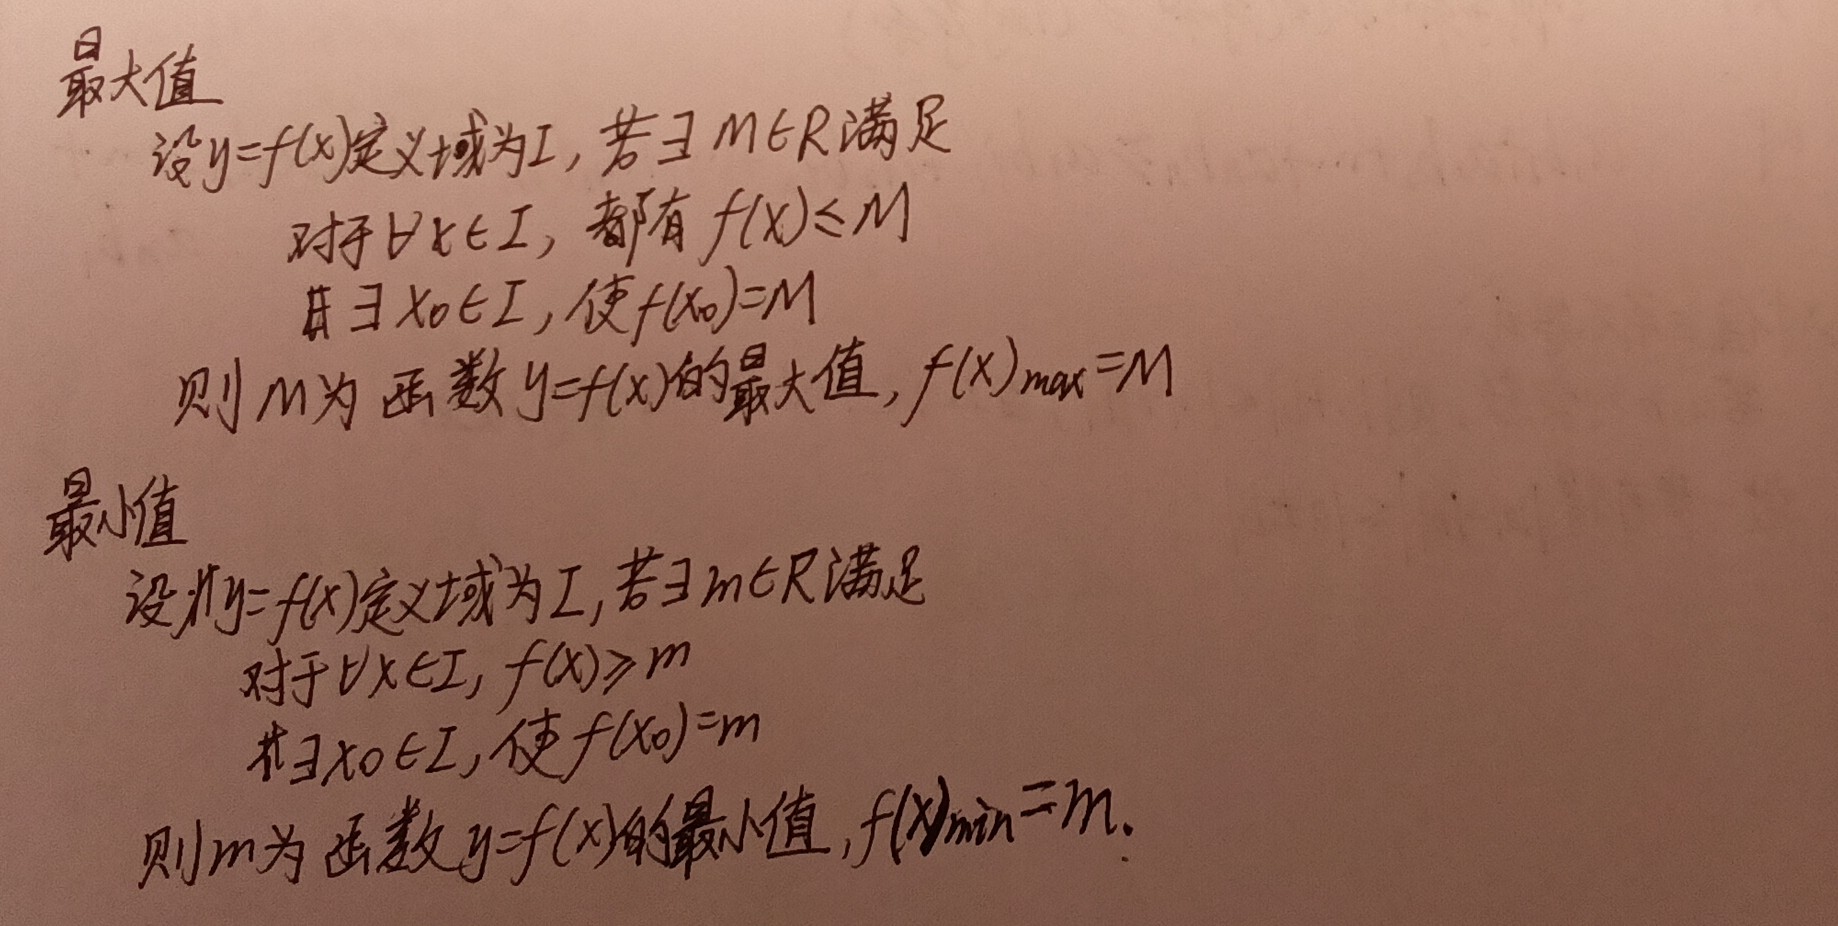 最大值
设y=f(x)定义域为I,若∃M∈R满足
对于∀x∈I,都有f(x)≤M
且∃x₀∈I,使f(x₀)=M
则M为函数y=f(x)的最大值,f(x)max=M
最小值
设y=f(x)定义域为I,若∃m∈R满足
对于∀x∈I,f(x)≥m
∃x₀∈I,使f(x₀)=m
则m为函数y=f(x)的最小值,f(x)min=m.